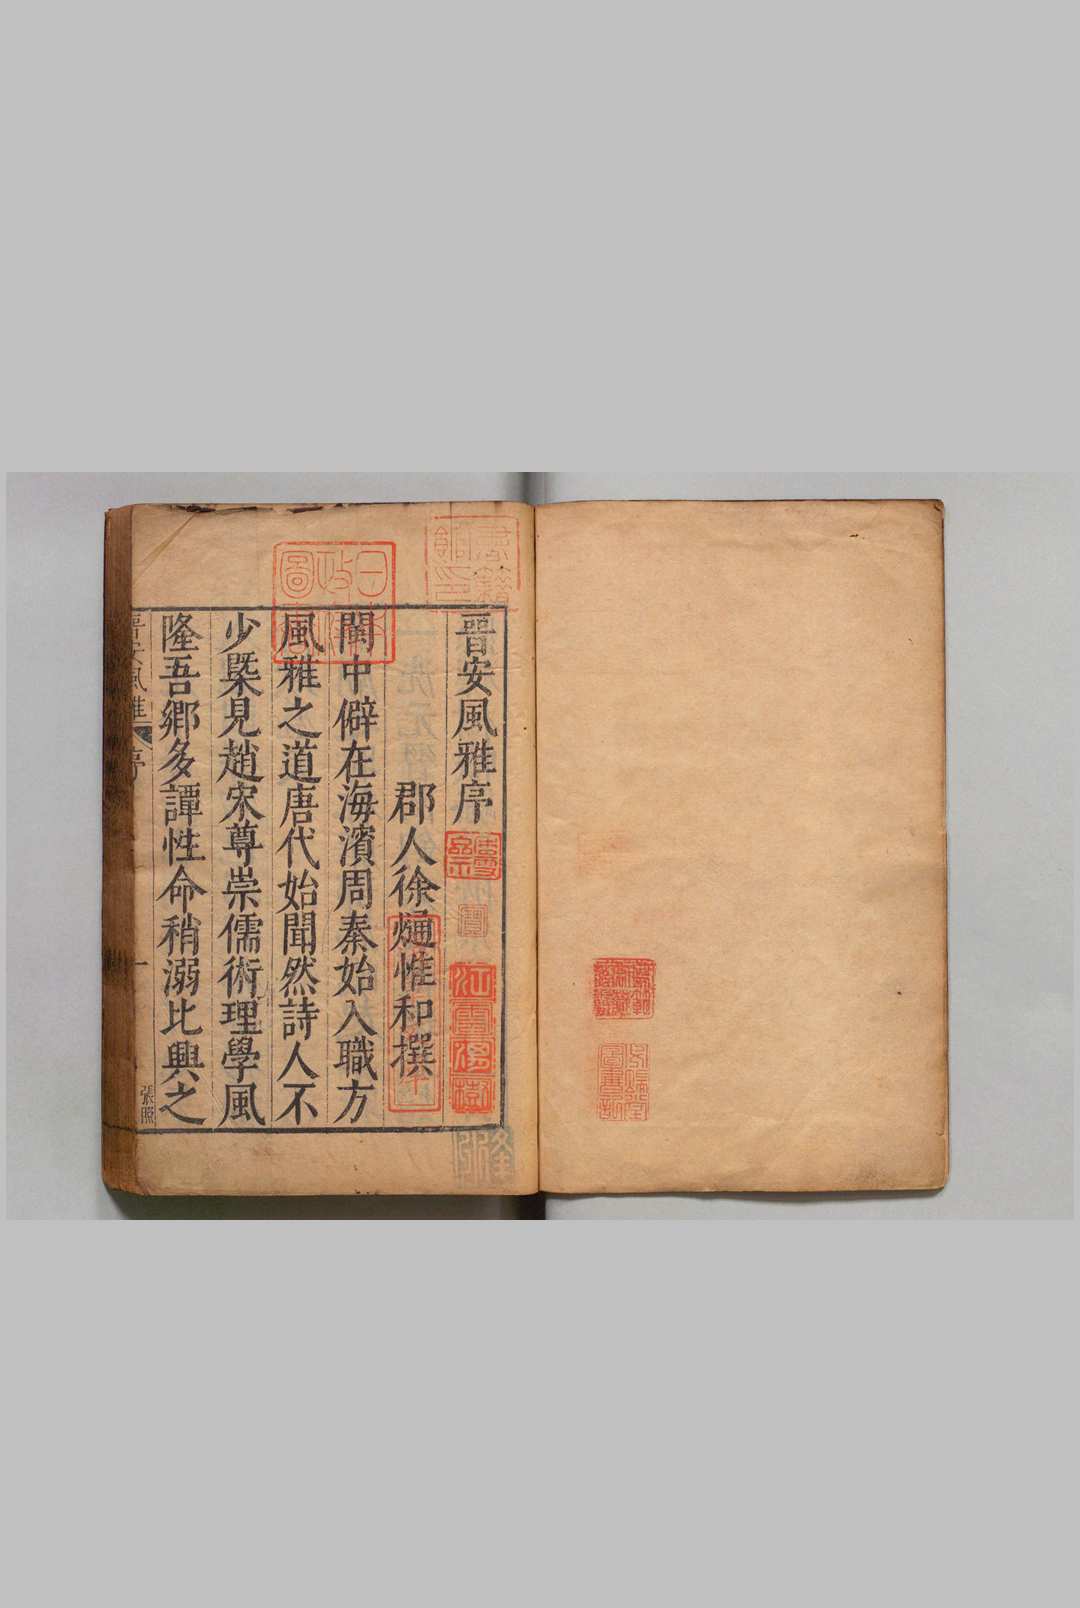 晋安風雅序
郡人徐熥惟和撰
閩中僻在海濱周秦始入職方
風雅之道唐代始聞然詩人不
少槩見趙宋尊崇儒術理學風
隆吾鄉多譚性命稍溺比興之
晋安風雅
序
一
張照
日本
政府
圖書